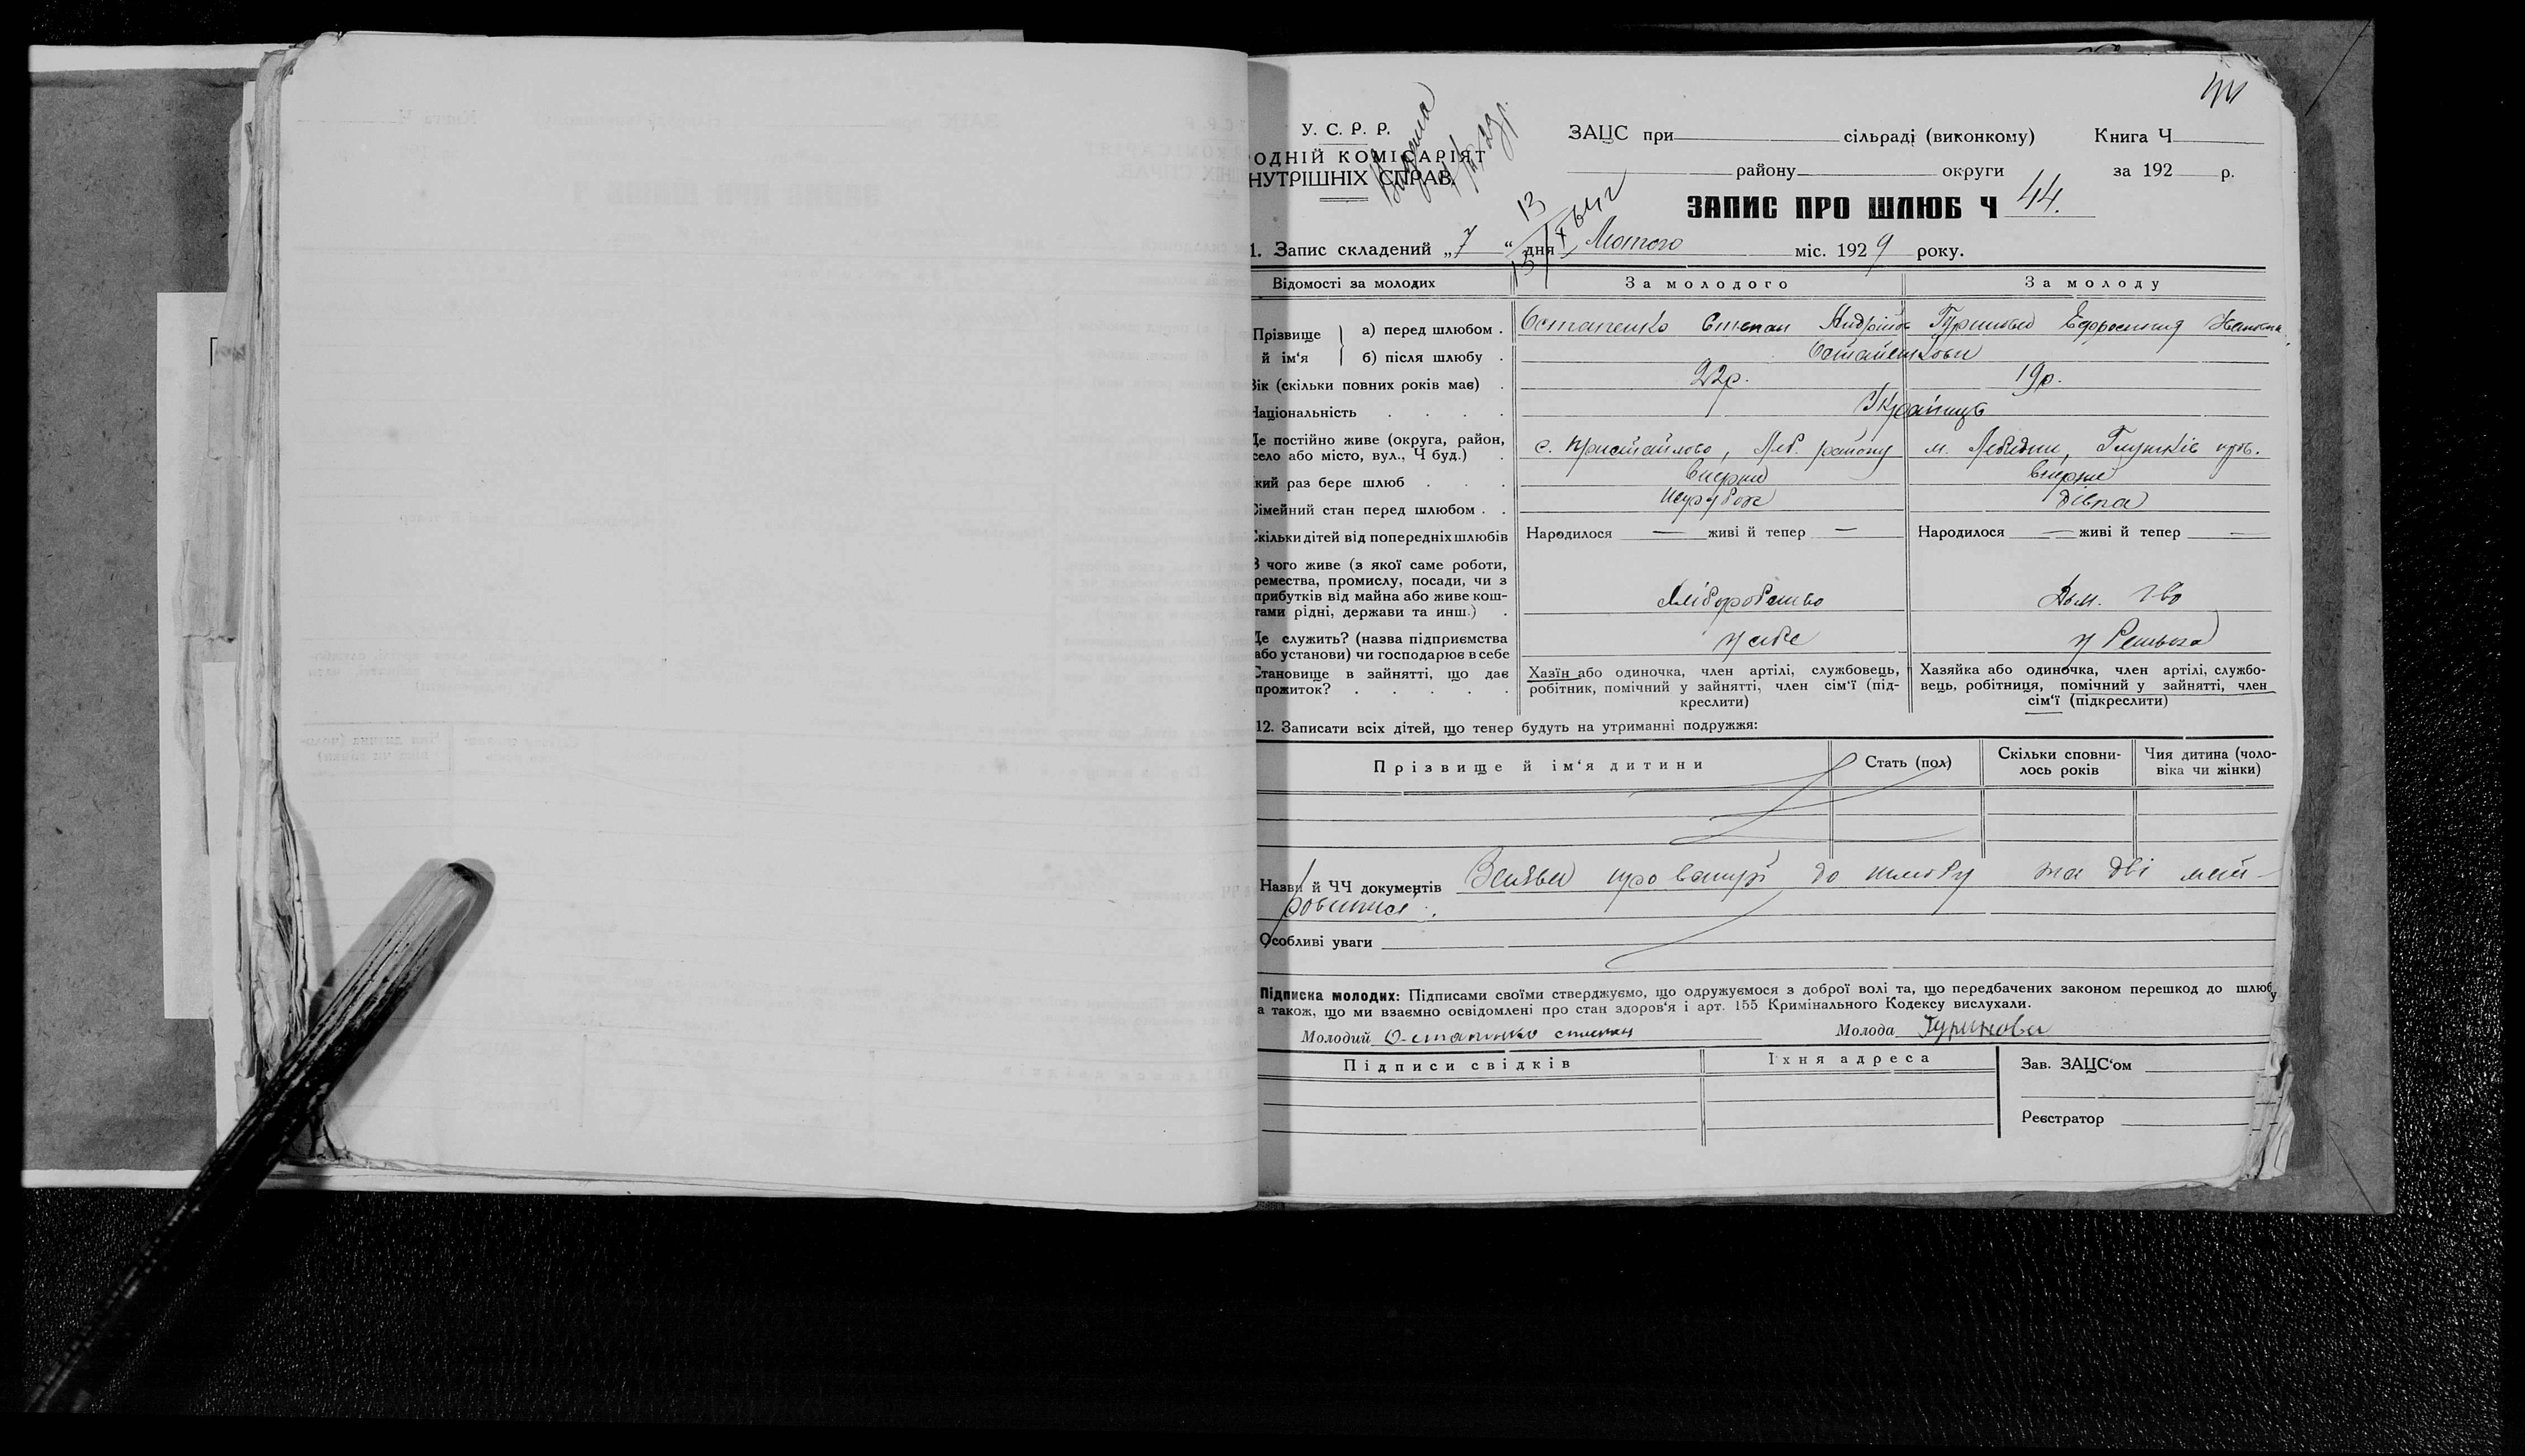 44
У. С. Р. Р.
ОДНІЙ КОМІСАРІЯТ
НУТРІШНІХ СПРАВ.
ЗАЦС при сільраді (виконкому) Книга Ч
району округи за 192 р.
ЗАПИС ПРО ШЛЮБ Ч 44.
1. Запис складений „7“ дня Лютого міс. 1929 року.
Відомості за молодих За молодого За молоду
Прізвище й ім‘я
а) перед шлюбом . Остапенко Степан Андрійов Гуринова Ефросиния Ивановна
б) після шлюбу . Остапенкови
Вік (скільки повних років має) . 22р. 19р.
Національність . . . . Українці
Де постійно живе (округа, район, село або місто, вул., Ч буд.) . с. Пристайлово, Леб. району м. Лебедин,
кий раз бере шлюб . . . вперше вперше
Сімейний стан перед шлюбом . . парубок дівка
Скільки дітей від попередніх шлюбів Народилося — живі й тепер — Народилося — живі й тепер —
З чого живе (з якої саме роботи,
ремества, промислу, посади, чи з
прибутків від майна або живе кош-
тами рідні, держави та инш.) . Хліборобство Дом. г-во
Де служить? (назва підприємства
або установи) чи господарює в себе у себе у батька
Становище в зайнятті, що дає
прожиток? . . . . .
Хазїн або одиночка, член артілі, службовець,
робітник, помічний у зайнятті, член сім‘ї (під-
креслити)
Хазяйка або одиночка, член артілі, службо-
вець, робітниця, помічний у зайнятті, член
сім‘ї (підкреслити)
12. Записати всіх дітей, що тепер будуть на утриманні подружжя:
Прізвище й ім‘я дитини Стать (пол) Скільки сповни-
лось років Чия дитина (чоло-
віка чи жінки)
Назви й ЧЧ документів Заява про вступ до шлюбу та дві
Особливі уваги
Підписка молодих: Підписами своїми стверджуємо, що одружуємося з доброї волі та, що передбачених законом перешкод до шлюбу
а також, що ми взаємно освідомлені про стан здоров‘я і арт. 155 Кримінального Кодексу вислухали.
Молодий Остапенко степан Молода Гуринова
Підписи свідків Їхня адреса Зав. ЗАЦС‘ом
Реєстратор